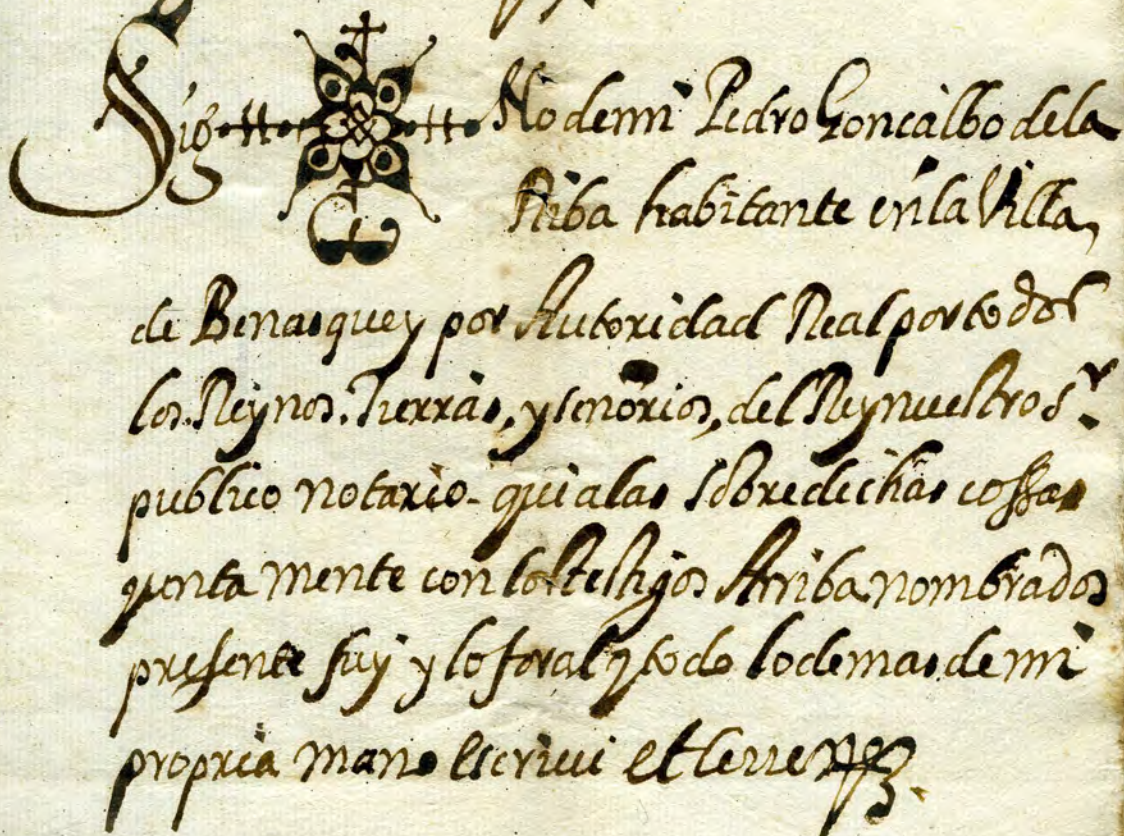 Sig No de mi Pedro Goncalbo de la
Riba habitante en la Villa,
de Benasque y por Autoridad Real por todos
los Reynos. Tierras, y señorios, del Rey nuestro Sr.
publico notario - qui a las sobredichas cossas
quntamente con los testigos Arriba nombrados
presente fuy y lo foral y todo lo demas de mi
propria mano escriui et cerre